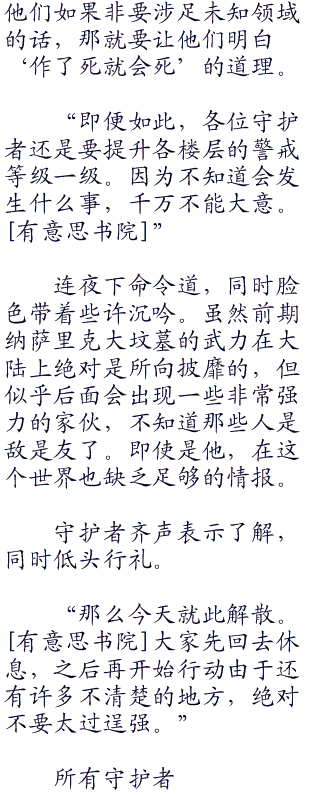 他们如果非要涉足未知领域
的话，那就要让他们明白
‘作了死就会死’的道理。
“即便如此，各位守护
者还是要提升各楼层的警戒
等级一级。因为不知道会发
生什么事，千万不能大意。
[有意思书院]”
连夜下命令道，同时脸
色带着些许沉吟。虽然前期
纳萨里克大坟墓的武力在大
陆上绝对是所向披靡的，但
似乎后面会出现一些非常强
力的家伙，不知道那些人是
敌是友了。即使是他，在这
个世界也缺乏足够的情报。
守护者齐声表示了解，
同时低头行礼。
“那么今天就此解散。
[有意思书院]大家先回去休
息，之后再开始行动由于还
有许多不清楚的地方，绝对
不要太过逞强。”
所有守护者